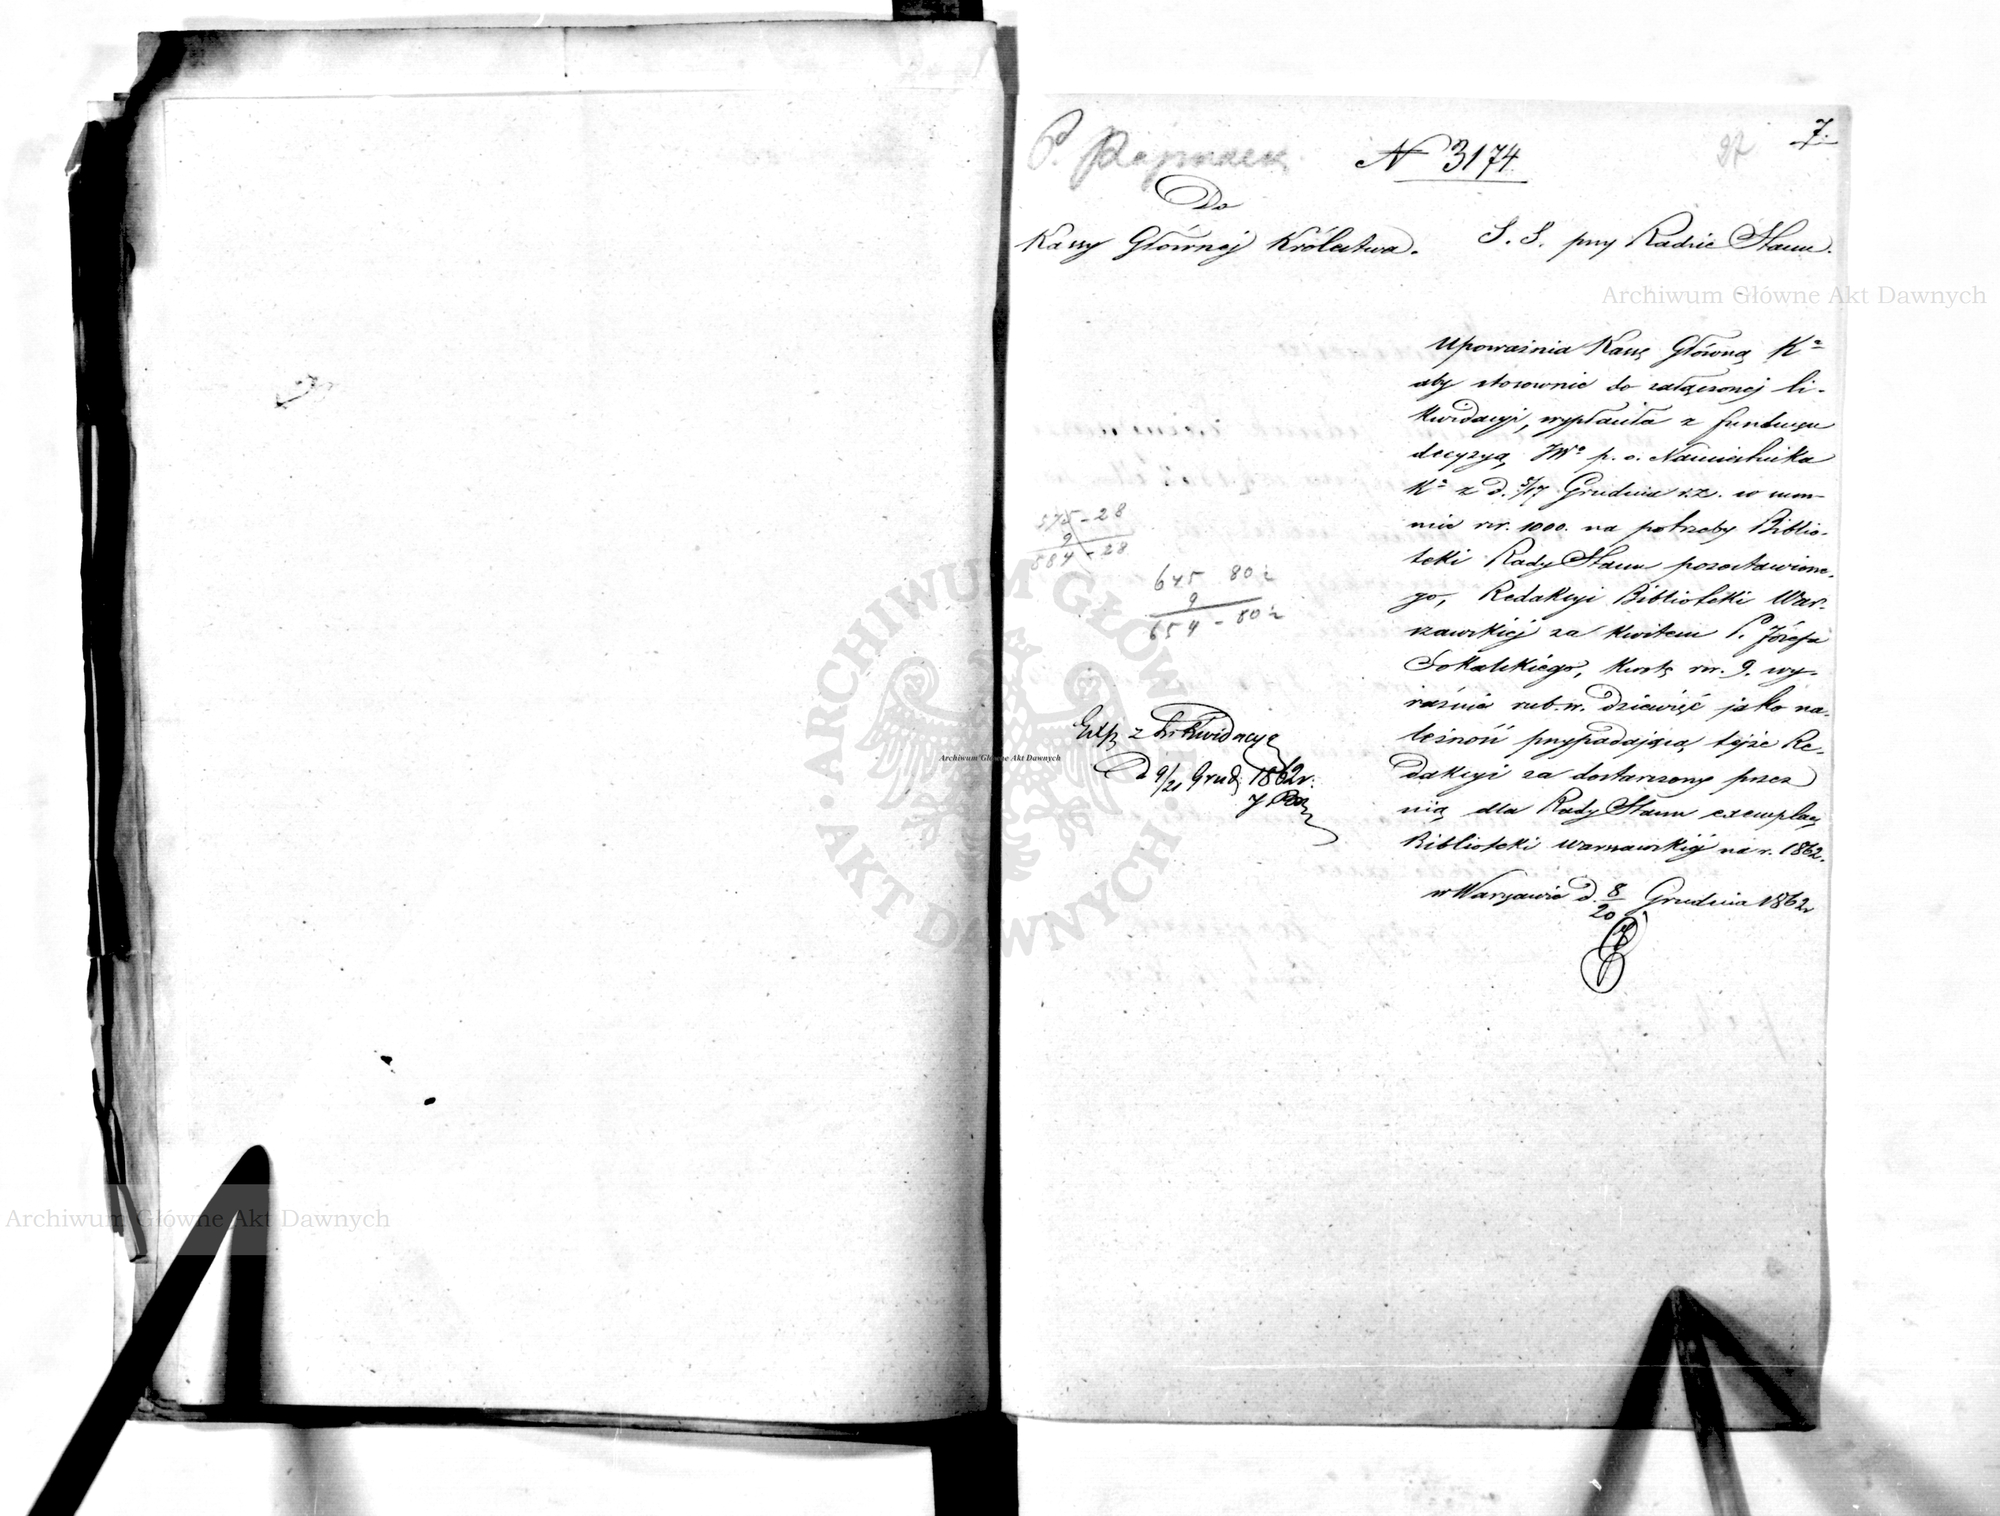 7.
97
P.
N 3174
Do
Kassy Głównej Królestwa.
S. S. przy Radzie Stanu.
Upoważnia Kassę Główną Kª
aby stosownie do załączonej li-
kwidacyi, wypłaciła z funduszu
decyzyą JWº p. o. Namiestnika
Kª z d. 5/17 Grudnia r.z. w sum-
mie rsr. 1000. na potrzeby Biblio-
teki Rady Stanu pozostawione-
go, Redakcyi Biblioteki War-
szawskiej za kwitem P. Józefa
Sokalskiego, kwotę rsr. 9. wy-
raźnie rub. sr. dziewięć jako na-
leżność przypadającą tejże Re-
dakcyi za dostarczony przez
nią dla Rady Stanu exemplarz
Biblioteki Warszawskiej na r. 1862.
w Warszawie d. 8/20 Grudnia 1862r
575 - 28
9
584 - 28
645 80 ½
9
654 - 80 ½
Exp z Likwidacyą
d 9/21 Grud. 1862r.
Archiwum Główne Akt Dawnych
Archiwum Główne Akt Dawnych
Archiwum Główne Akt Dawnych
ARCHIWUM GŁÓWNE · AKT DAWNYCH ·